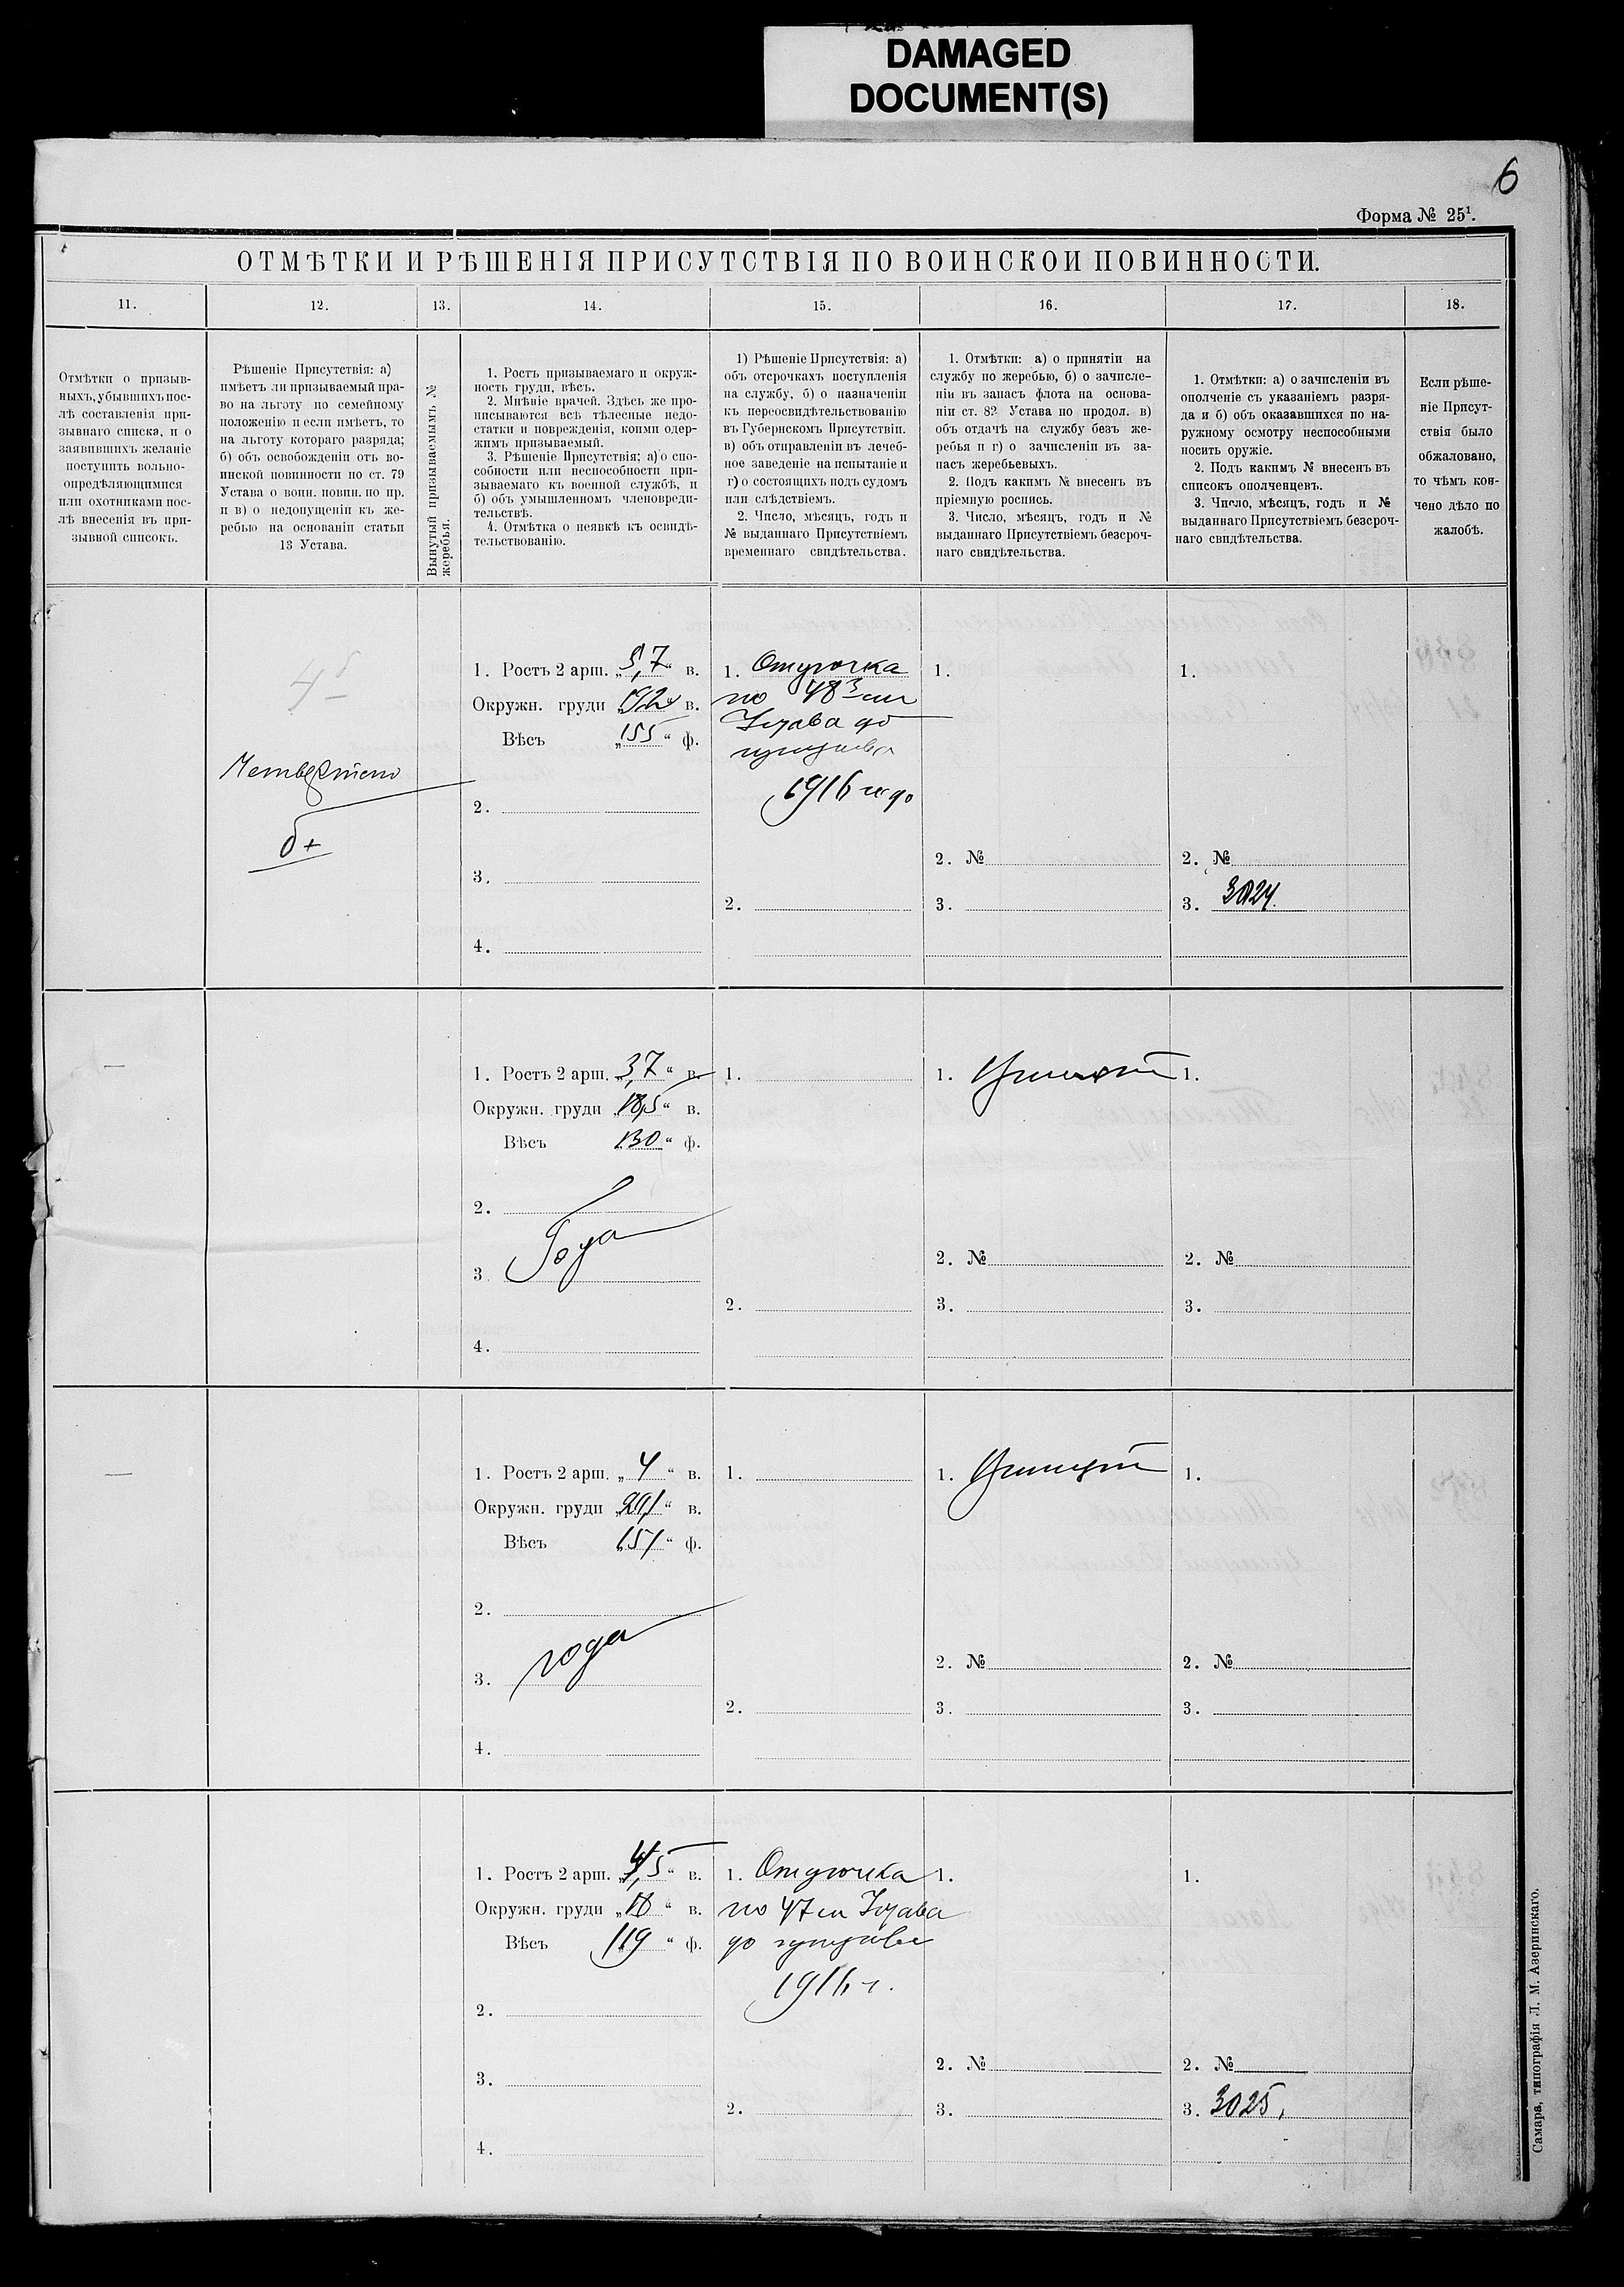 DAMAGED
DOCUMENT(S)
6
Форма № 25¹.
ОТМѢТКИ И РѢШЕНІЯ ПРИСУТСТВІЯ ПО ВОИНСКОЙ ПОВИННОСТИ.
11.
12.
13.
14.
15.
16.
17.
18.
Отмѣтки о призыв-
ныхъ, убывшихъ пос-
лѣ составленія при-
зывнаго списка, и о
заявившихъ желаніе
поступить вольно-
опредѣляющимися
или охотниками пос-
лѣ внесенія въ при-
зывной списокъ.
Рѣшеніе Присутствія: а)
имѣетъ ли призываемый пра-
во на льготу по семейному
положенію и если имѣетъ, то
на льготу котораго разряда;
б) объ освобожденіи отъ во-
инской повинности по ст. 79
Устава о воин. повин. по пр.
и в) о недопущеніи къ же-
ребью на основаніи статьи
13 Устава.
Вынутый призываемымъ №
жеребья.
1. Ростъ призываемаго и окруж-
ность груди, вѣсъ.
2. Мнѣніе врачей. Здѣсь же про-
писываются всѣ тѣлесные недо-
статки и поврежденія, коими одер-
жимъ призываемый.
3. Рѣшеніе Присутствія; а) о спо-
собности или неспособности при-
зываемаго къ военной службѣ, и
б) объ умышленномъ членовреди-
тельствѣ.
4. Отмѣтка о неявкѣ къ освидѣ-
тельствованію.
1) Рѣшеніе Присутствія: а)
объ отсрочкахъ поступленія
на службу, б) о назначеніи
къ переосвидѣтельствованію
въ Губернскомъ Присутствіи.
в) объ отправленіи въ лечеб-
ное заведеніе на испытаніе и
г) о состоящихъ подъ судомъ
или слѣдствіемъ.
2. Число, мѣсяцъ, годъ и
№ выданнаго Присутствіемъ
временнаго свидѣтельства.
1. Отмѣтки: а) о принятіи на
службу по жеребью, б) о зачисле-
ніи въ запасъ флота на основа-
ніи ст. 82 Устава по продол. в)
объ отдачѣ на службу безъ же-
ребья и г) о зачисленіи въ за-
пасъ жеребьевыхъ.
2. Подъ какимъ № внесенъ въ
пріемную роспись.
3. Число, мѣсяцъ, годъ и №
выданнаго Присутствіемъ безсроч-
наго свидѣтельства.
1. Отмѣтки: а) о зачисленіи въ
ополченіе съ указаніемъ разря-
да и б) объ оказавшихся по на-
ружному осмотру неспособными
носить оружіе.
2. Подъ какимъ № внесенъ въ
списокъ ополченцевъ.
3. Число, мѣсяцъ, годъ и №
выданнаго Присутствіемъ безсроч-
наго свидѣтельства.
Если рѣше-
ніе Присут-
ствія было
обжаловано,
то чѣмъ кон-
чено дѣло по
жалобѣ.
1. Ростъ 2 арш. „5,7“ в.
Окружн. груди „ “ в.
Вѣсъ „155“ ф.
2.
3.
4.
1. Отсрочка
по 48³ ст
Устава до
призыва
1916 года
2.
1.
2. №
3.
1.
2. №
3. 3024.
1. Ростъ 2 арш. „3,7“ в.
Окружн. груди „18,5“ в.
Вѣсъ „130“ ф.
2.
3. Годен
4.
1.
2.
1. Принят
2. №
3.
1.
2. №
3.
1. Ростъ 2 арш. „4“ в.
Окружн. груди „ “ в.
Вѣсъ „151“ ф.
2.
3. годен
4.
1.
2.
1. Принят
2. №
3.
1.
2. №
3.
1. Ростъ 2 арш. „4,5“ в.
Окружн. груди „18“ в.
Вѣсъ „119“ ф.
2.
3.
4.
1. Отсрочка
по 47 ст Устава
до призыва
1916 г.
2.
1.
2. №
3.
1.
2. №
3. 3025.
Самара, типографія Л. М. Азеринскаго.